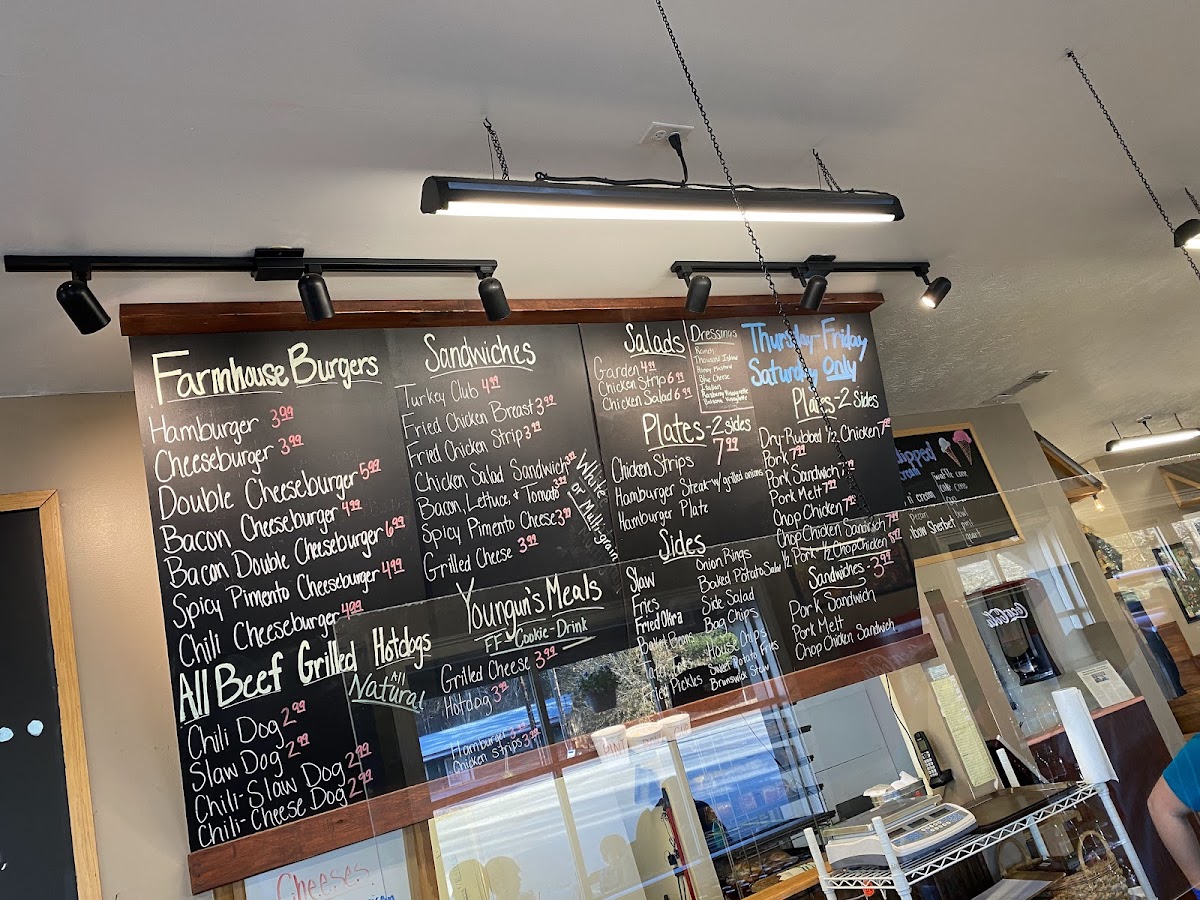 Farmhouse Burgers
Hamburger 3.99
Cheeseburger 3.99
Double Cheeseburger 5.99
Bacon Cheeseburger 4.99
Bacon Double Cheeseburger 6.99
Spicy Pimento Cheeseburger 4.99
Chili Cheeseburger 4.99
All Beef Grilled Hotdogs
All Natural
Chili Dog 2.99
Slaw Dog 2.99
Chili-Slaw Dog 2.99
Chili-Cheese Dog 2.99
Sandwiches
Turkey Club 4.99
Fried Chicken Breast 3.99
Fried Chicken Strip 3.99
Chicken Salad Sandwich 3.99
Bacon, Lettuce, & Tomato 3.99
Spicy Pimento Cheese 3.99
Grilled Cheese 3.99
White or Multigrain
Youngun's Meals
FF-Cookie-Drink
Grilled Cheese 3.99
Hotdog 3.99
Hamburger
Chicken Strips 3.99
Salads
Garden 4.99
Chicken Strip 6.99
Chicken Salad 6.99
Dressings
Ranch
Thousand Island
Honey Mustard
Blue Cheese
Italian
Raspberry Vinaigrette
Balsamic Vinaigrette
Plates-2 sides
7.99
Chicken Strips
Hamburger Steak w/ grilled onions
Hamburger Plate
Sides
Slaw
Fries
Fried Okra
Pocket Beans
Tater Tots
Fried Pickles
Onion Rings
Baked Potato Salad
Side Salad
Bag Chips
House Chips
Sweet Potato Fries
Brunswick Stew
Thursday-Friday
Saturday Only
Plates-2 Sides
Dry-Rubbed 1/2 Chicken 7.99
Pork 7.99
Pork Sandwich 7.99
Pork Melt 7.99
Chop Chicken 7.99
Chop Chicken Sandwich 7.99
1/2 Pork 1/2 Chop Chicken 8.99
Sandwiches-3.99
Pork Sandwich
Pork Melt
Chop Chicken Sandwich
dipped
Waffle cone
Sherbet
pint
quart
Coca-Cola
Cheeses